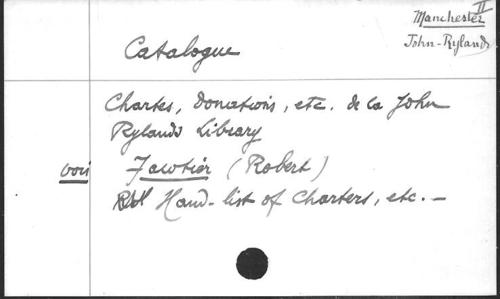 Manchester II
John-Rylands
Catalogue
Chartes, Donations, etc. de la John
Rylands Library
voir Fawtier (Robert)
Hand-list of Charters, etc. —